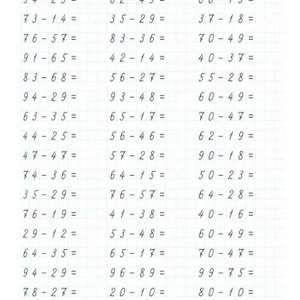 73-14= 35-29= 37-18=
76-57= 83-36= 70-49=
91-65= 42-14= 40-37=
83-68= 56-27= 55-28=
94-29= 93-48= 60-49=
63-35= 65-17= 70-47=
44-25= 56-46= 62-19=
47-47= 57-28= 90-18=
74-36= 64-15= 50-23=
35-29= 76-57= 64-28=
76-19= 41-38= 40-16=
29-12= 53-48= 60-49=
64-35= 65-17= 70-47=
94-29= 96-89= 99-75=
78-27= 20-10= 80-10=